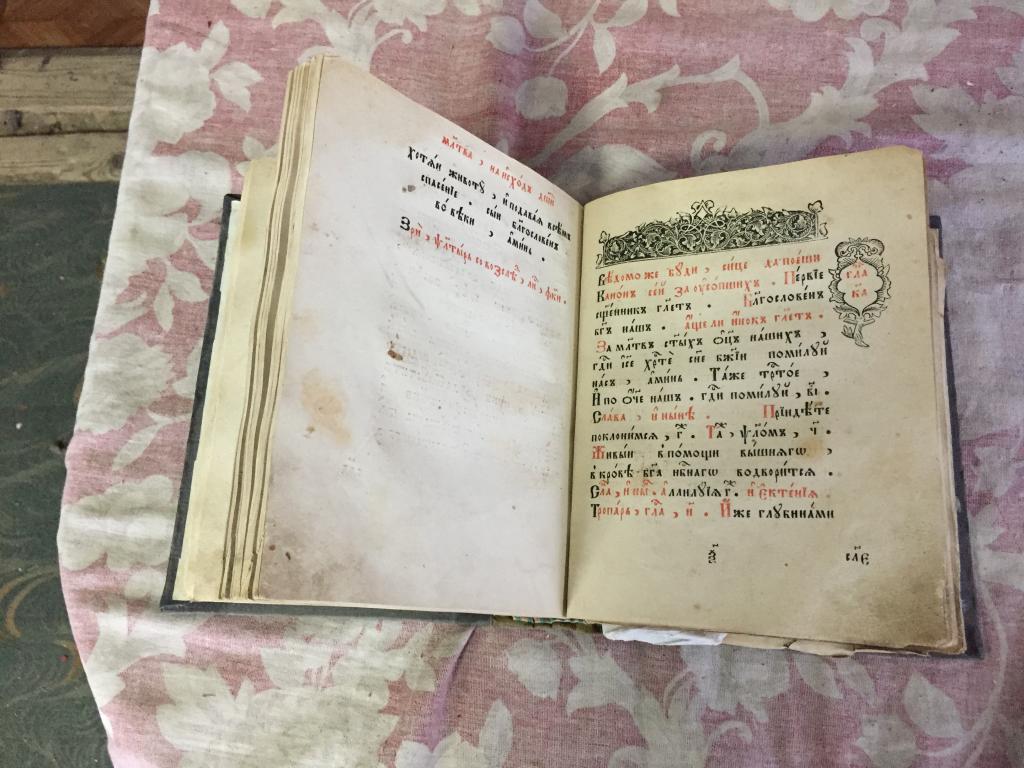 мл҃тва, на исходъ дш҃и
хотѧи животꙋ̀, и҆ подаваѧ вѣ́рнымъ
спасе́нїе. сы́й бл҃гослове́нъ
во вѣ́ки, а҆ми́нь.
Зри̑, ѱалты́рь со возслѣ̑, ли̑,
Вѣ́домо же бꙋ́ди, си́це да пое́ши
Кано́нъ се́й За ᲂу҆со́пшихъ. Пе́рвїе
сщ҃е́нникъ гл҃етъ. Бл҃гослове́нъ
бг҃ъ на́шъ. а҆́ще ли и҆́нокъ гл҃етъ.
За мл҃твъ ст҃ы́хъ ѻ҆ц҃ъ на́шихъ,
гдⷭ҇и і҆с҃е хрⷭ҇тѐ сн҃е бж҃їи поми́лꙋй
на́съ, а҆ми́нь. Та́же трⷭ҇то́е,
И҆ по о́ч҃е на́шъ. гдⷭ҇и поми́лꙋй, в҃і.
Сла́ва, и҆ ны́нѣ. Прїидѣ́те
поклони́мсѧ, г҃. Та́, ѱло́мъ, ч҃.
Живы́й в по́мощи вы́шнѧгѡ,
в кро́вѣ бг҃а нбⷭ҇нагѡ водвори́тсѧ.
Сла̑, и҆ ны̑. а҆ллилꙋ́їѧ г҃. и҆ є҆ктенїѧ̀
Тропа́рь, гла̑, и҃. И҆́же глꙋбина́ми
гла
ка
з҃
сл҃є